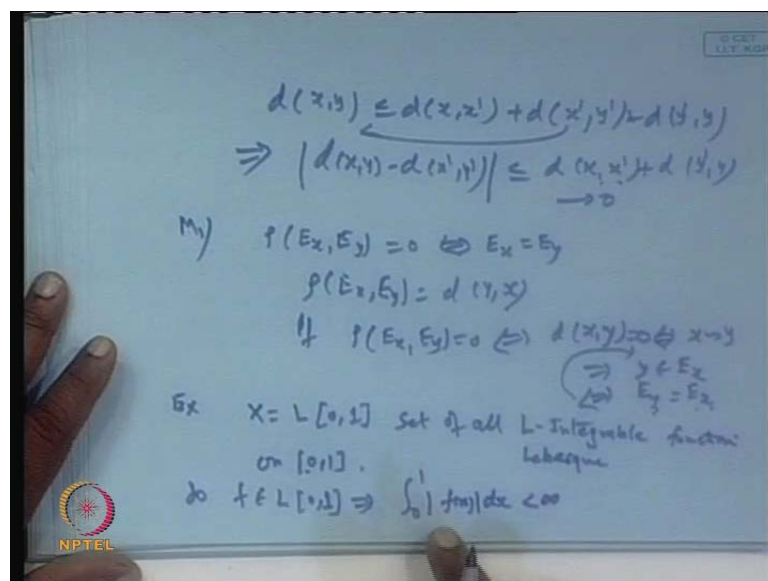 © CET
I.I.T. KGP
d(x,y) ≤ d(x,x') + d(x',y') + d(y',y)
⇒ |d(x,y) - d(x',y')| ≤ d(x,x') + d(y',y)
→ 0
M₁) ρ(Ex, Ey) = 0 ⇔ Ex = Ey
ρ(Ex, Ey) = d(y,x)
If ρ(Ex, Ey) = 0 ⇔ d(x,y) = 0 ⇔ x~y
⇒ y ∈ Ex
⇔ Ey = Ex
Ex X = L[0,1] Set of all L-Integrable function
on [0,1]. Lebesgue
so f ∈ L[0,1] ⇒ ∫₀¹ |f(x)| dx < ∞
NPTEL